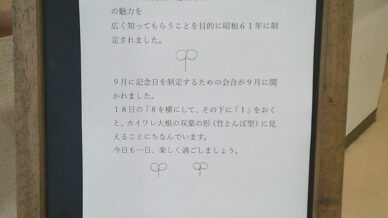 の魅力を
広く知ってもらうことを目的に昭和６１年に制
定されました。
９月に記念日を制定するための会合が９月に開
かれました。
１８日の「８を横にして、その下に「１」をおく
と、カイワレ大根の双葉の形（竹とんぼ型）に見
えることにちなんでいます。
今日も一日、楽しく過ごしましょう。